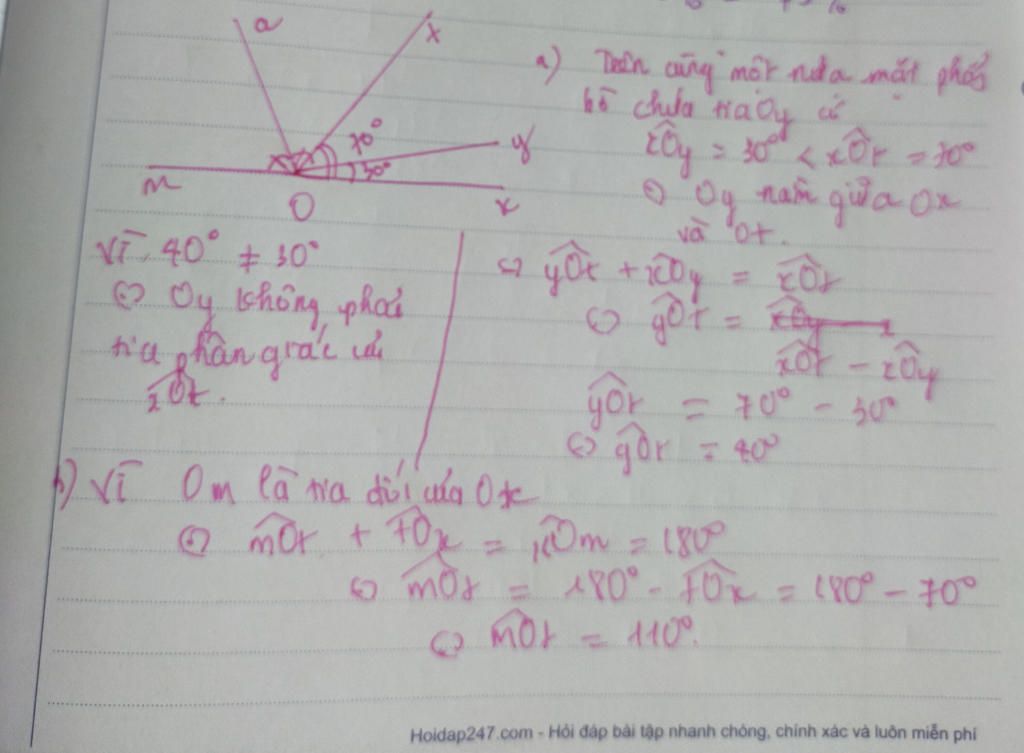 a
x
70°
y
30°
m
O
x
a) Trên cùng một nửa mặt phẳng
bờ chứa tia Oy có
xÔy = 30° < xÔt = 70°
⇔ Oy nằm giữa Ox
và Ot.
⇔ yÔt + xÔy = xÔt
⇔ yÔt =
xÔt - xÔy
yÔt = 70° - 30°
⇔ yÔt = 40°
Vì 40° ≠ 30°
⇔ Oy không phải
tia phân giác của
xÔt.
b) Vì Om là tia đối của Ox
⇔ mÔt + tÔx = xÔm = 180°
⇔ mÔt = 180° - tÔx = 180° - 70°
⇔ mÔt = 110°.
Hoidap247.com - Hỏi đáp bài tập nhanh chóng, chính xác và luôn miễn phí